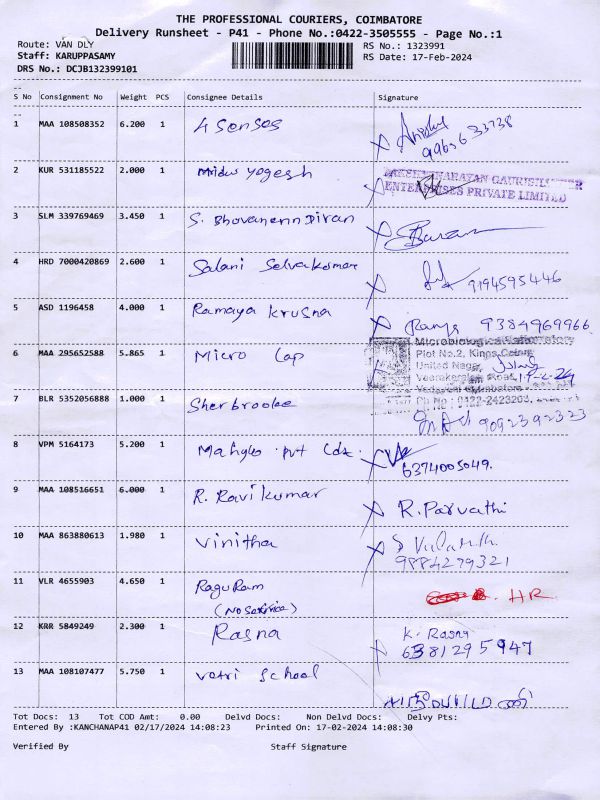 THE PROFESSIONAL COURIERS, COIMBATORE
Delivery Runsheet - P41 - Phone No.:0422-3505555 - Page No.:1
Route: VAN DLY RS No.: 1323991
Staff: KARUPPASAMY RS Date: 17-Feb-2024
DRS No.: DCJB132399101
S No Consignment No Weight PCS Consignee Details Signature
1 MAA 108508352 6.200 1 4 Senses
2 KUR 531185522 2.000 1 Mridu Yogesh
ENTERPRISES PRIVATE LIMITED
3 SLM 339769469 3.450 1
4 HRD 7000420869 2.600 1 Salani Selvakumar 9194595446
5 ASD 1196458 4.000 1 Ramaya Krusna Ramya 9384969966
Microbiological Laboratory
6 MAA 295652588 5.865 1 Micro Lap Plot No.2,
United Nagar,
Road, 17-2-24
7 BLR 5352056888 1.000 1 Sherbrooke Ph No : 0422-2423203,
9092392323
8 VPM 5164173 5.200 1 pvt Ldt
6374005049.
9 MAA 108516651 6.000 1 R. Ravikumar R. Parvathi
10 MAA 863880613 1.980 1 Vinitha
9884279321
11 VLR 4655903 4.650 1 RaguRam HR
(No Service)
12 KRR 5849249 2.300 1 Rasna K. Rasna
6381295947
13 MAA 108107477 5.750 1 Vetri School
Tot Docs: 13 Tot COD Amt: 0.00 Delvd Docs: Non Delvd Docs: Delvy Pts:
Entered By :KANCHANAP41 02/17/2024 14:08:23 Printed On: 17-02-2024 14:08:30
Verified By Staff Signature